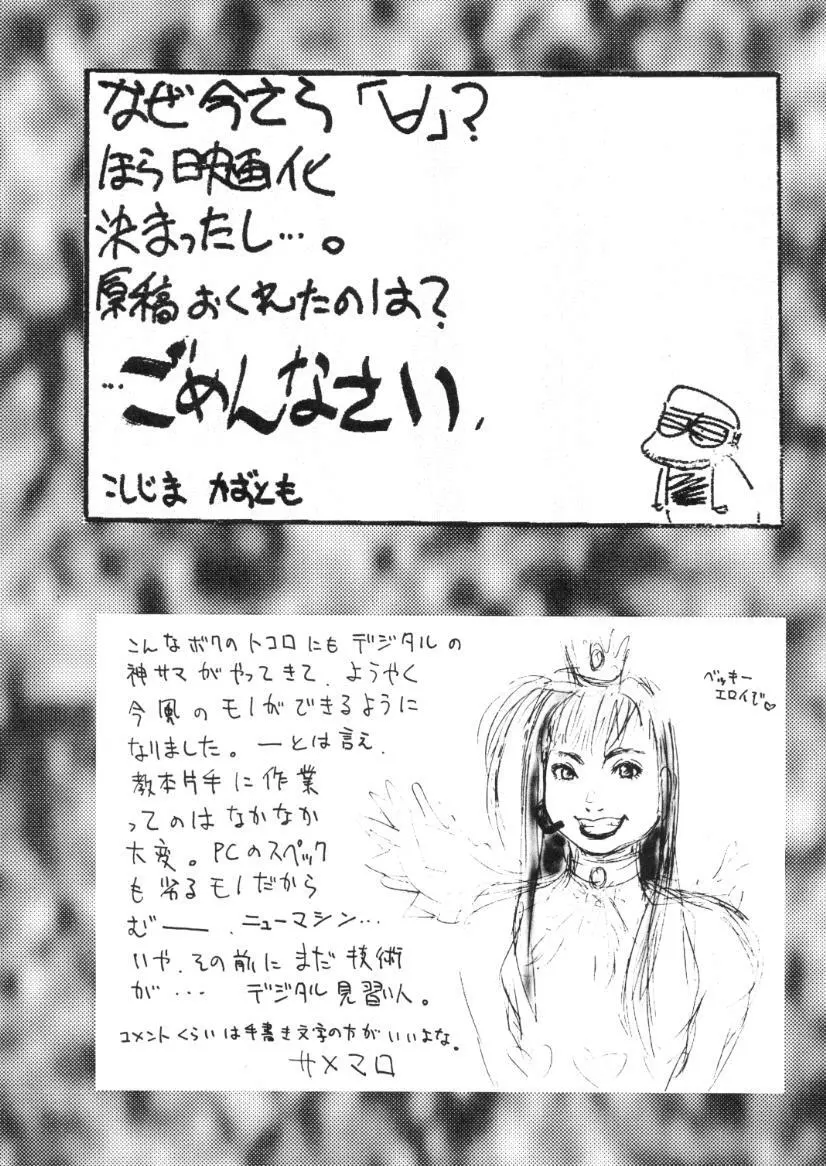 なぜ今さら「∀」？
ほら映画化
決まったし…。
原稿おくれたのは？
…ごめんなさい、
こしじま かずとも
こんなボクのトコロにもデジタルの
神サマがやってきて、ようやく
今風のモノができるように
なりました。―とは言え、
教本片手に作業
ってのはなかなか
大変。PCのスペック
も劣るモノだから
むー、ニューマシン…
いや、その前にまだ技術
が… デジタル見習い人。
コメントくらいは手書き文字の方がいいよな。
サメマロ
ベッキー
エロイで♡